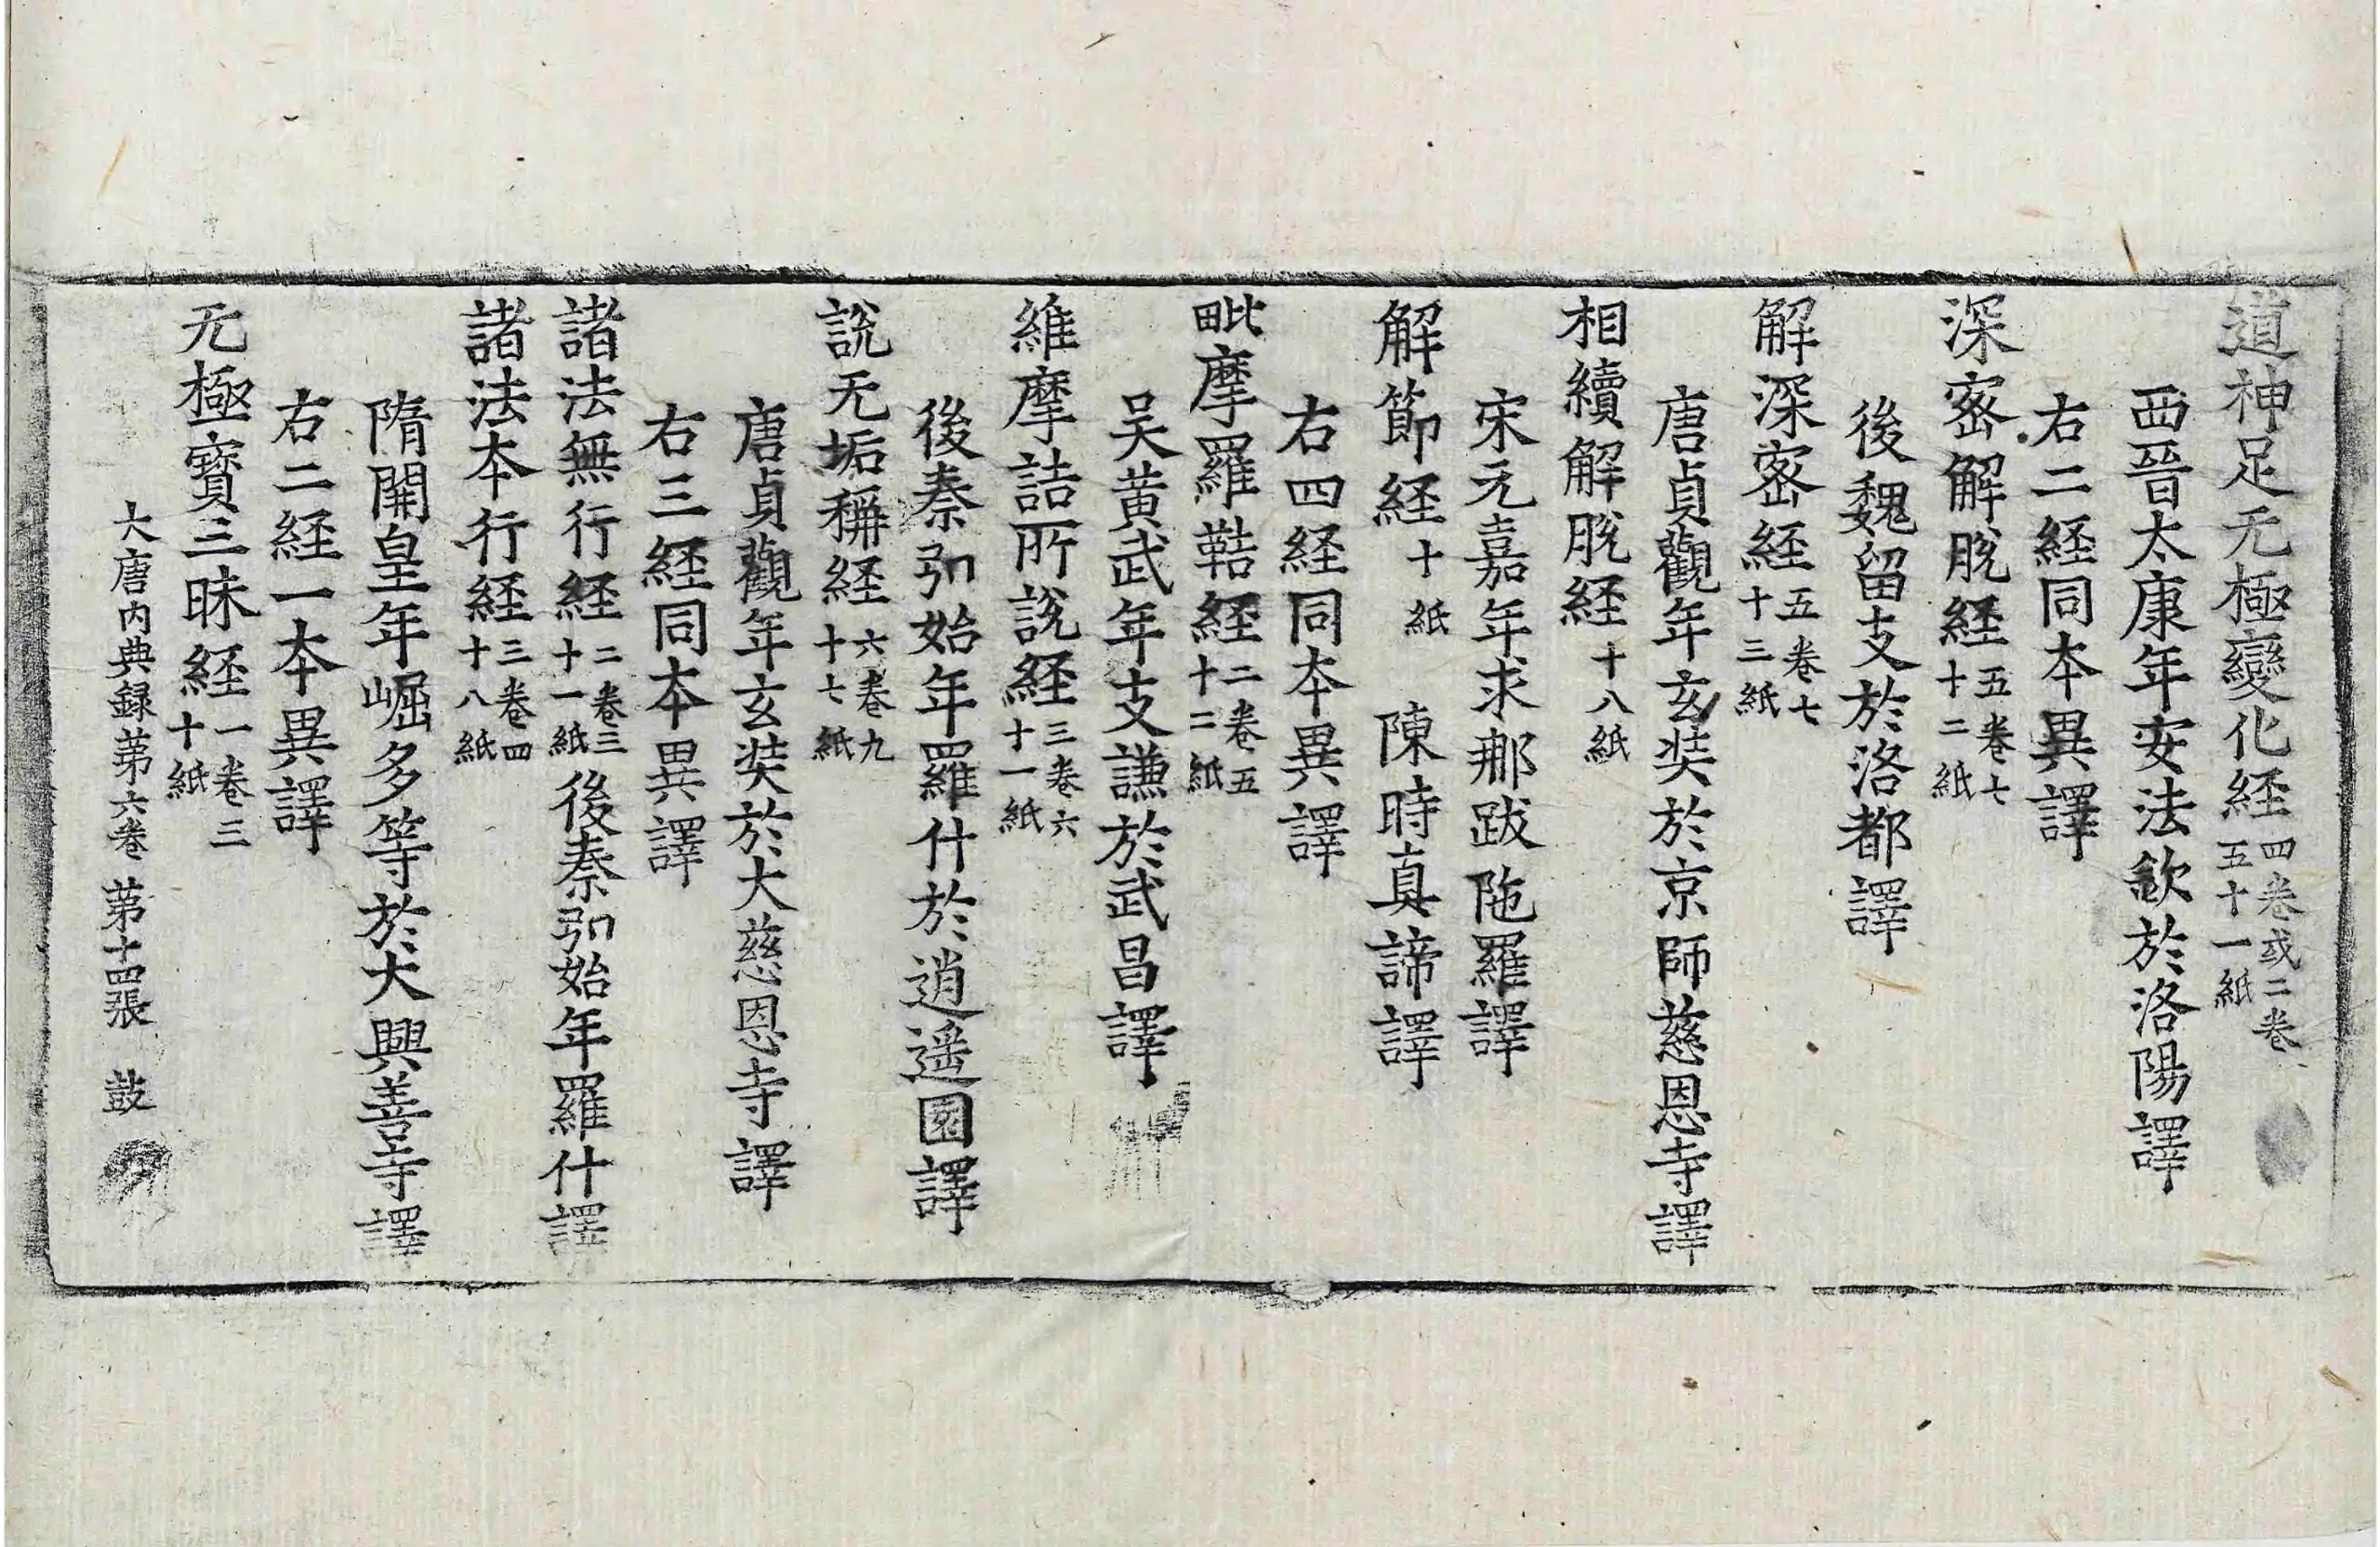 道神足无極變化経四卷或二卷五十一紙
西晉太康年安法欽於洛陽譯
右二経同本異譯
深密解脫経五卷七十二紙
後魏留支於洛都譯
解深密経五卷七十三紙
唐貞觀年玄奘於京師慈恩寺譯
相續解脫経十八紙
宋元嘉年求那跋陁羅譯
解節経十紙　陳時真諦譯
右四経同本異譯
毗摩羅鞊経二卷五十二紙
吴黄武年支謙於武昌譯
維摩詰所說経三卷六十一紙
後秦弘始年羅什於逍遥園譯
說无垢稱経六卷九十七紙
唐貞觀年玄奘於大慈恩寺譯
右三経同本異譯
諸法無行経二卷三十一紙後秦弘始年羅什譯
諸法本行経三卷四十八紙
隋開皇年崛多等於大興善寺譯
右二経一本異譯
无極寶三昧経一卷三十紙
大唐内典録苐六卷　苐十四張　鼓